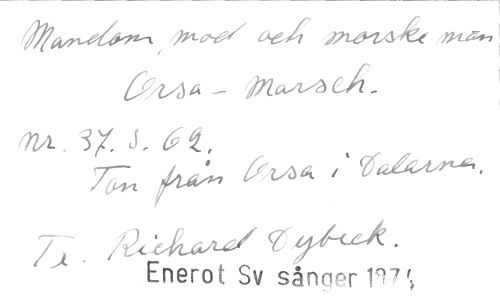 Mandom, mod och morske män
Orsa - Marsch.
Nr. 37. S. 62.
Ton från Orsa i Dalarna.
Richard Dybeck.
Enerot Sv sånger